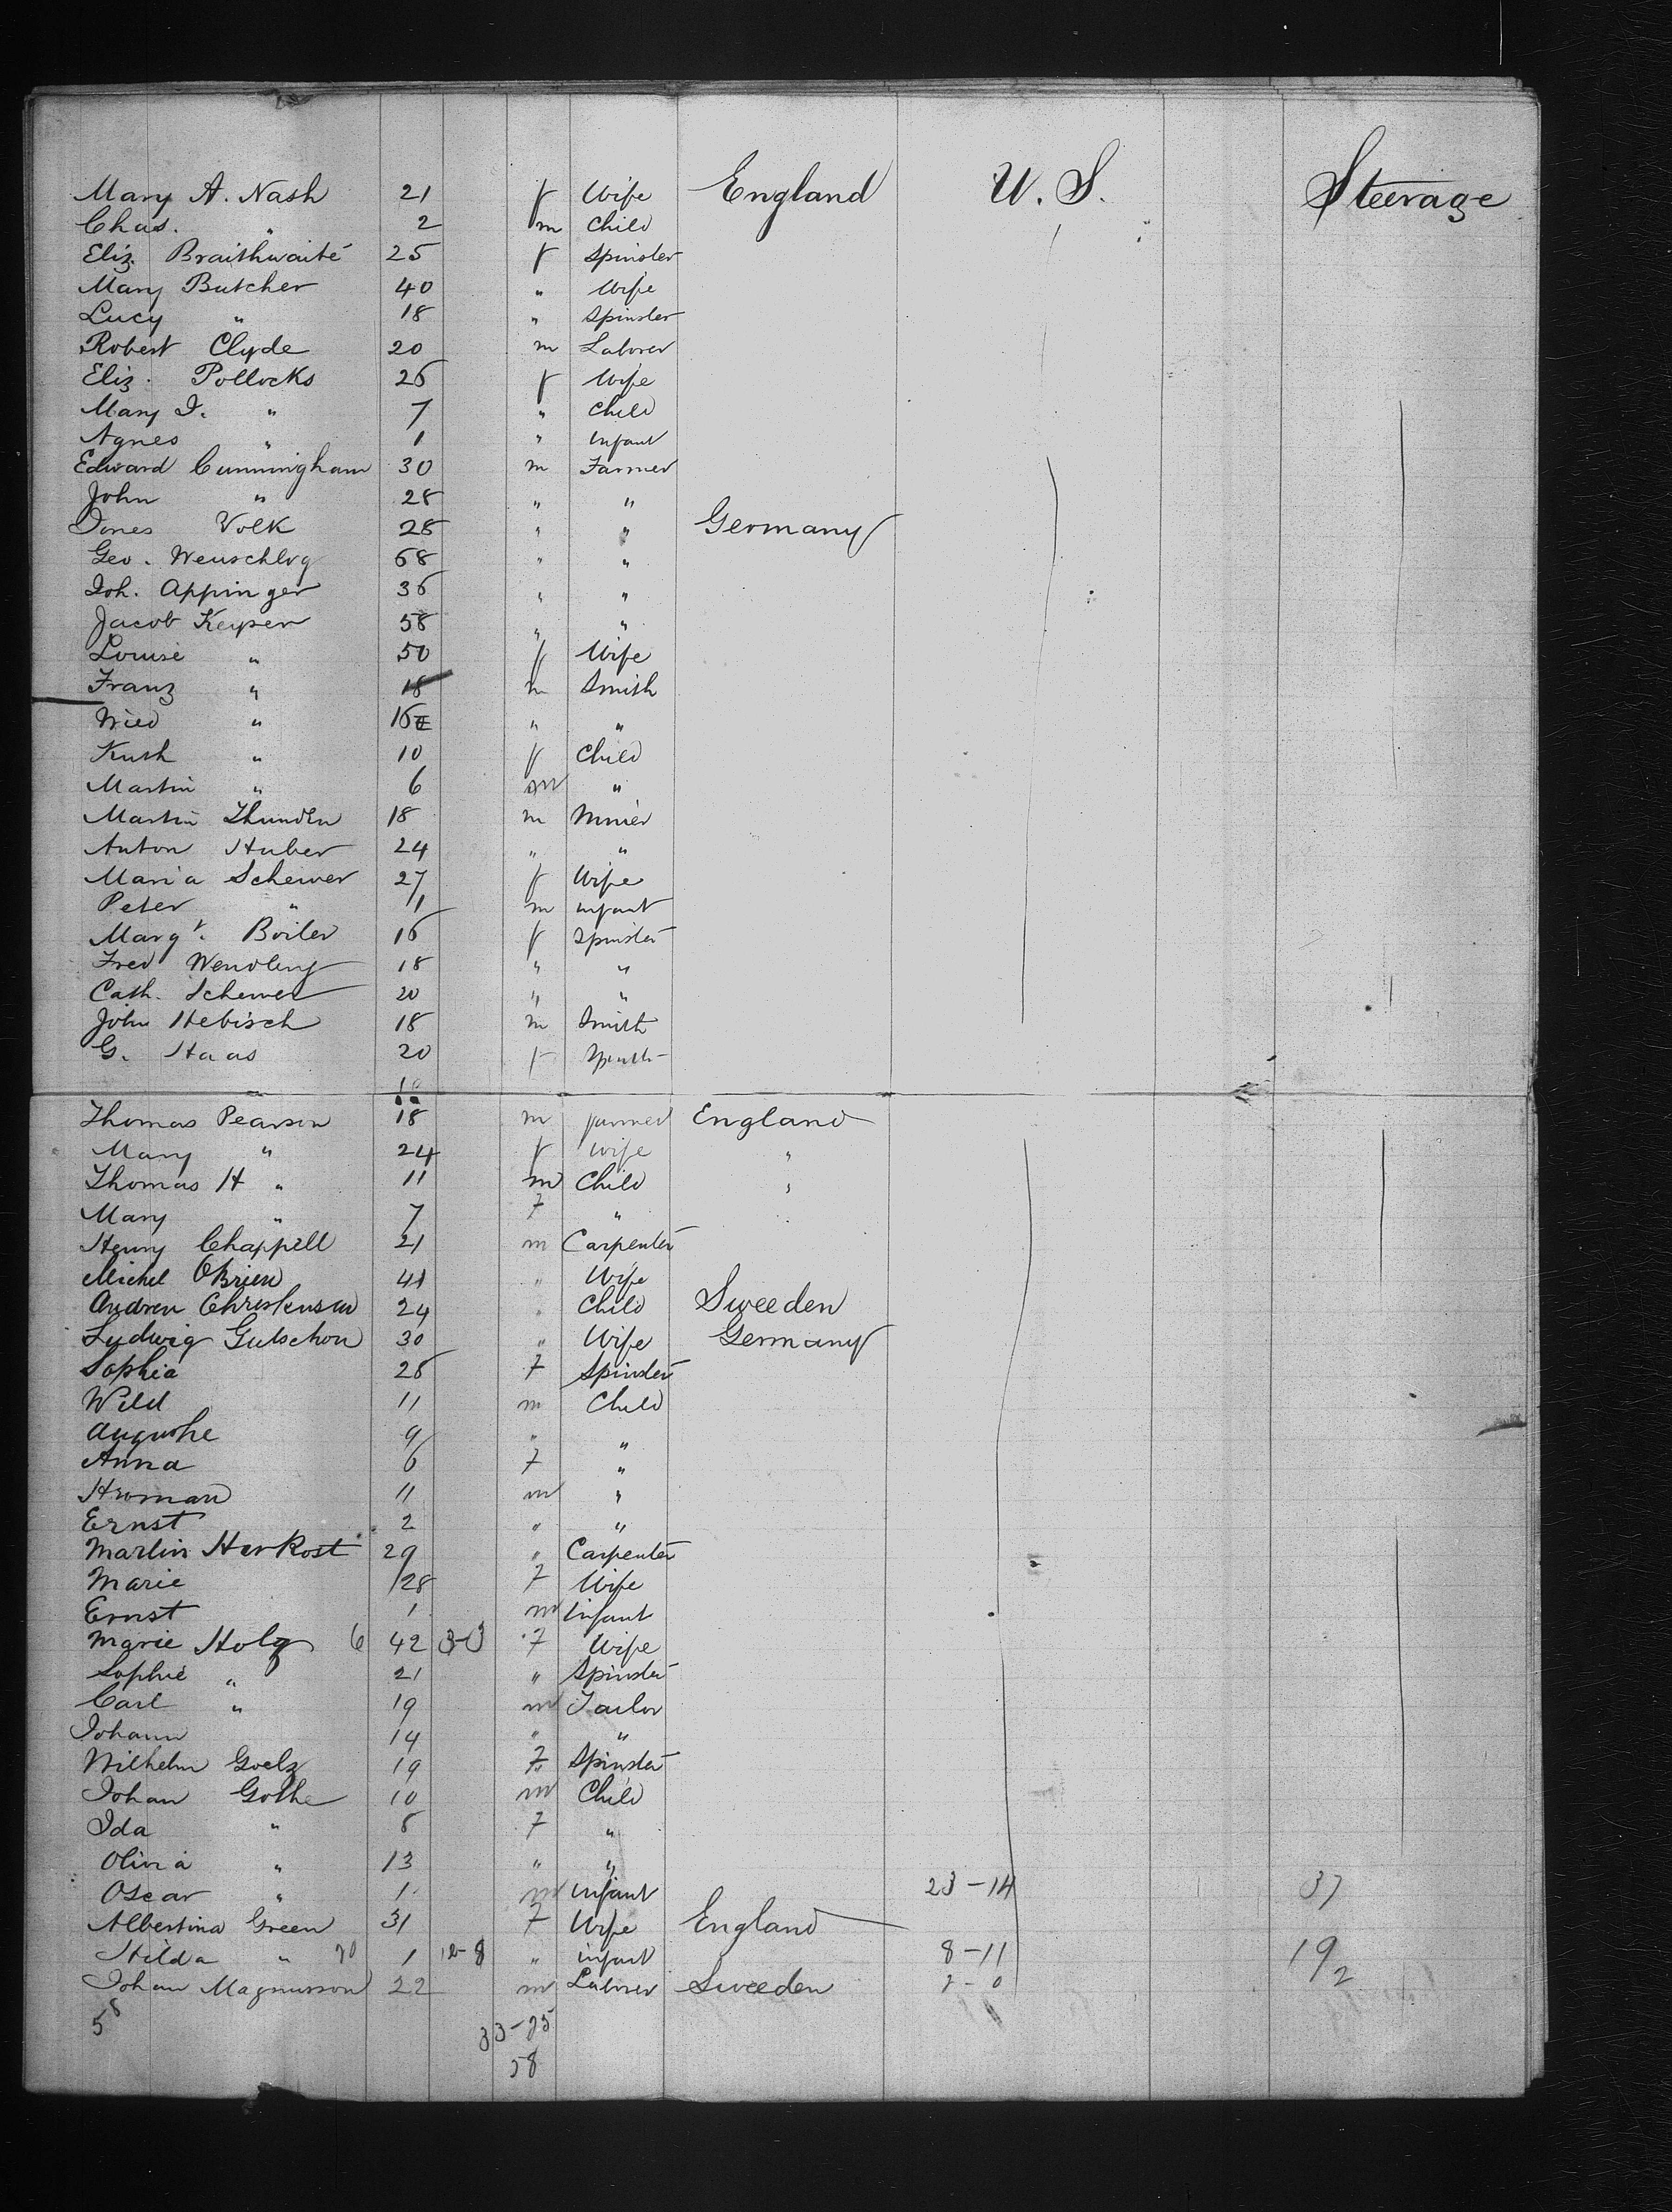 Mary A. Nash 21 f Wife England U.S. Steerage
Chas. " 2 m Child
Eliz. Braithwaite 25 f Spinster
Mary Butcher 40 " Wife
Lucy " 18 " Spinster
Robert Clyde 20 m Laborer
Eliz. Pollocks 26 f Wife
Mary J. " 7 " Child
Agnes " 1 " Infant
Edward Cunningham 30 m Farmer
John " 28 " "
Jones Volk 28 " " Germany
Geo. 68 " "
Joh. Appinger 36 " "
Jacob Keyper 58 " "
Louise " 50 f Wife
Franz " 18 m Smith
" 16 " "
" 10 f Child
Martin " 6 m "
Martin 18 m
Anton Huber 24 " "
Maria Scherrer 27 f Wife
Peter " 1 m infant
Margt. Boiler 16 f Spinster
Fred Wendling 18 " "
Cath. Scherrer 20 " "
John Hebisch 18 m Smith
G. Haas 20 f
Thomas Pearson 18 m farmer England
Mary " 24 f Wife "
Thomas H " 11 m Child "
Mary " 7 F "
Henry Chappell 21 m Carpenter
Michel OBrien 41 " Wife
Andrew Christensen 24 " Child Sweeden
Ludwig Gutschon 30 " Wife Germany
Sophia 28 F Spinster
11 m Child
Auguste 9 " "
Anna 6 F "
Herman 11 m "
Ernst 2 " "
Martin Herkost 29 " Carpenter
Marie 28 F Wife
Ernst 1 m Infant
Marie Holz 6 42 3-3 F Wife
Sophie " 21 " Spinster
Carl " 19 m Tailor
Johann 14 " "
Wilhelm Goelz 19 F Spinster
Johan Gothe 10 m Child
Ida " 8 F "
Olivia " 13 " "
Oscar " 1 m Infant 23-14 37
Albertina Green 31 F Wife England
Hilda " 1 " infant 8-11 19
Johan Magnusson 22 m Laborer Sweeden 2-0 2
58 33-25
58